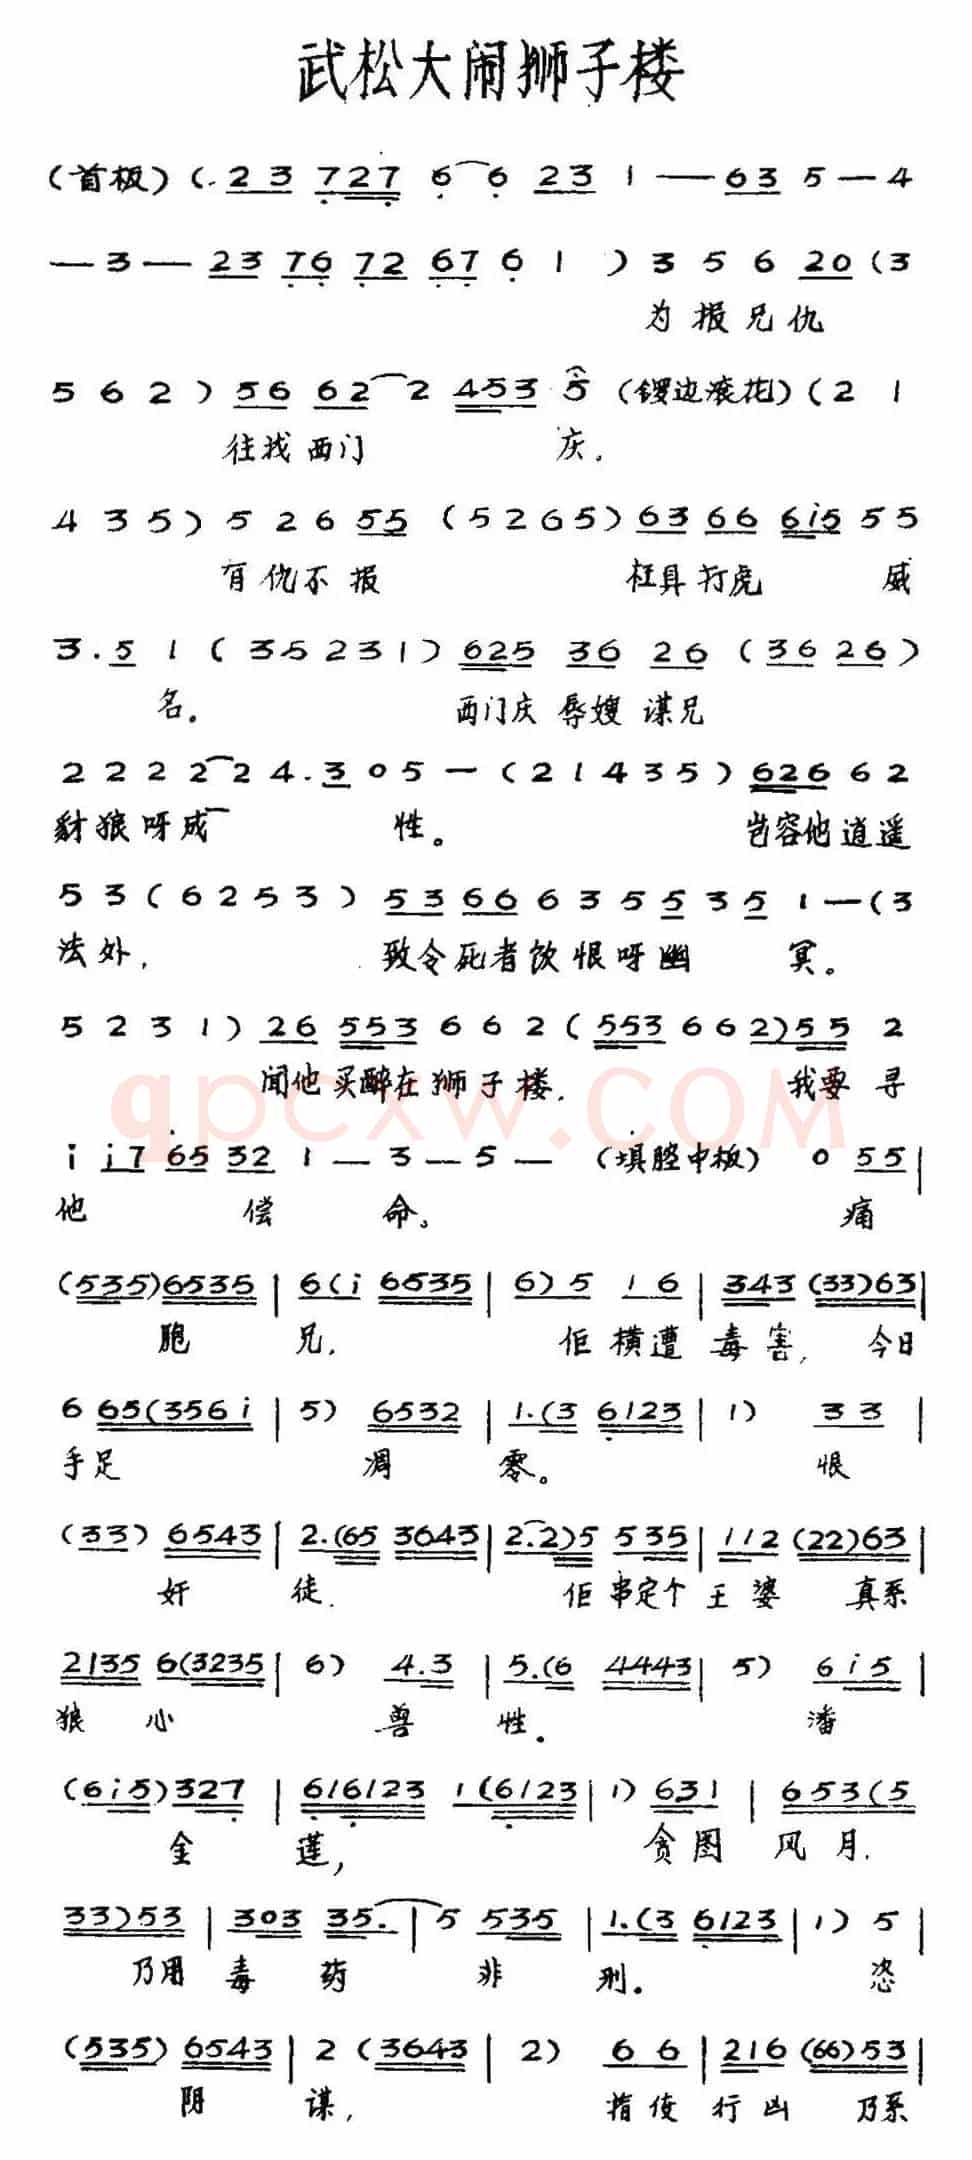 武松大闹狮子楼
(首板) (. 23 727 6 6 23 1 — 63 5 — 4
— 3 — 23 76 72 67 6 1 ) 3 5 6 20 (3
为报兄仇
5 6 2 ) 56 62 2 453 5 (锣边滚花) (2 1
往找西门 庆.
4 3 5 ) 5 2 6 55 (5265) 63 66 6i5 5 5
有仇不报 枉具打虎 威
3. 5 1 (35231) 625 36 26 (3626)
名。 西门庆 辱嫂 谋兄
2 2 2 2 2 4. 3 0 5 — (21435) 626 6 2
豺狼呀成 性。 岂容他逍遥
5 3 (6253) 53 66 6 3 5 5 3 5 1 — (3
法外, 致令死者饮恨呀幽 冥。
5 2 3 1 ) 26 553 6 6 2 (553 6 6 2) 55 2
闻他买醉在狮子楼. 我要寻
qpcxw.COM
i i7 65 32 1 — 3 — 5 — (填腔中板) 0 55 |
他 偿 命。 痛
(535) 6535 | 6 (i 6535 | 6) 5 1 6 | 343 (33) 63 |
胞 兄, 佢横遭毒害, 今日
6 65 (356i | 5) 6532 | 1. (3 6123 | 1) 33 |
手足 凋 零。 恨
(33) 6543 | 2. (65 3643 | 2. 2) 5 535 | 112 (22) 63 |
奸 徒. 佢串定个王婆 真系
2135 6 (3235 | 6) 4.3 | 5. (6 4443 | 5) 6i5 |
狼心 兽 性. 潘
(6i5) 327 | 616123 1 (6123 | 1) 631 | 653 (5
金 莲, 贪图风月.
33) 53 | 303 35. | 5 535 | 1. (3 6123 | 1) 5 |
乃用毒 药 非 刑. 恣
(535) 6543 | 2 (3643 | 2) 66 | 216 (66) 53 |
阴 谋, 指使行凶 乃系